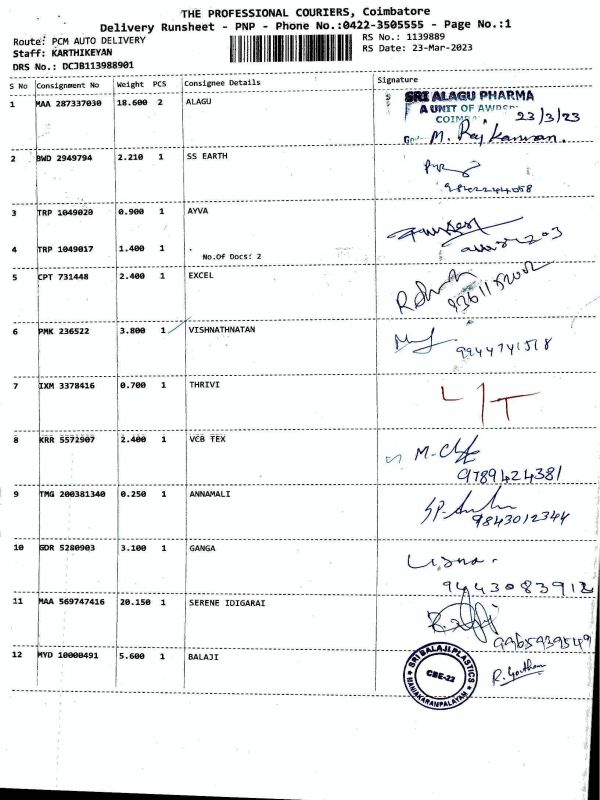 THE PROFESSIONAL COURIERS, Coimbatore
Delivery Runsheet - PNP - Phone No.:0422-3505555 - Page No.:1
Route: PCM AUTO DELIVERY
RS No.: 1139889
Staff: KARTHIKEYAN
RS Date: 23-Mar-2023
DRS No.: DCJB113988901
S No Consignment No Weight PCS Consignee Details Signature
1 MAA 287337030 18.600 2 ALAGU
SRI ALAGU PHARMA
A UNIT OF
23/3/23
M. Raj Kannan.
2 BWD 2949794 2.210 1 SS EARTH
3 TRP 1049020 0.900 1 AYVA
4 TRP 1049017 1.400 1 .
No.Of Docs: 2
5 CPT 731448 2.400 1 EXCEL
6 PMK 236522 3.800 1 VISHNATHNATAN
9944741518
7 IXM 3378416 0.700 1 THRIVI
L/T
8 KRR 5572907 2.400 1 VCB TEX
9789424381
9 TMG 200381340 0.250 1 ANNAMALI
9843012344
10 GDR 5280903 3.100 1 GANGA
9443083912
11 MAA 569747416 20.150 1 SERENE IDIGARAI
9965939549
12 MYD 10000491 5.600 1 BALAJI
SRI BALAJI PLASTICS
CBE-22
MANIAKARAMPALAYAM
R. Gowtham